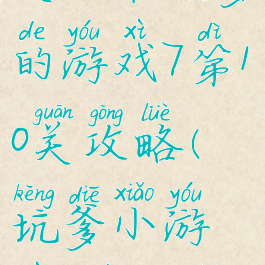 de yóu xì dì
的游戏7第1
guān gōng lüè
0关攻略(
kēng diē xiǎo yóu
坑爹小游